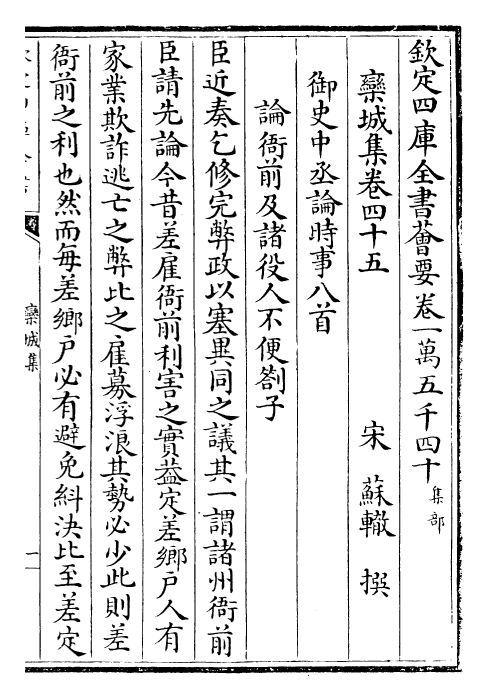 欽定四庫全書薈要卷一萬五千四十 集部
欒城集卷四十五 宋 蘇轍 撰
御史中丞論時事八首
論衙前及諸役人不便劄子
臣近奏乞修完弊政以塞異同之議其一謂諸州衙前
臣請先論今昔差雇衙前利害之實葢定差鄉戶人有
家業欺詐逃亡之弊比之雇募浮浪其勢必少此則差
衙前之利也然而每差鄉戶必有避免糾決比至差定
欒城集
一